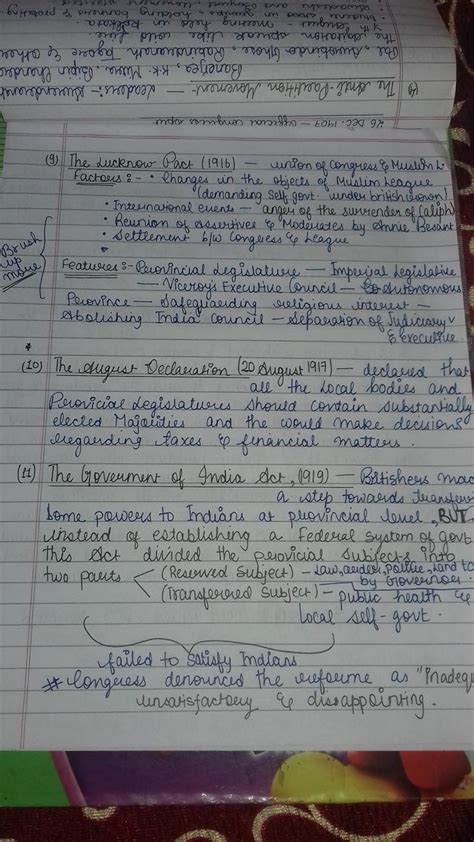 Banerjee, K.K. Mitra, Bipin Chandra
Aurobindo Ghose, Rabindranath Tagore & others
(8) The Anti-Partition Movement — Leaders:- Surendranath
26 DEC. 1907 —
(9) The Lucknow Pact (1916) — union of Congress & Muslim L.
Factors:- • Changes in the objects of Muslim League
(demanding Self Govt. under british crown)
• International events — anger of the surrender of Caliph
• Reunion of Assertives & Moderates by Annie Besant
• Settlement b/w Congress & League
Brush
up
more
Features:- Provincial Legislature — Imperial Legislative
— Viceroy's Executive Council — Autonomous
Province — Safeguarding religious interest —
Abolishing India Council — Separation of Judiciary
& Executive
*
(10) The August Declaration (20 August 1917) — declared that
all the Local bodies and
Provicial Legislatures should contain substantially
elected Majorities and the would make decisions
regarding taxes & financial matters.
(11) The Goverment of India Act, (1919) — Britishers mad
a step towards transfer
Some powers to Indians at provincial level, BUT
instead of establishing a Federal system of govt
this Act divided the provicial subjects into
two parts (Reserved Subject) – Law, order, police, land
by Governor
(Transferred Subject) – public health &
Local self-govt.
failed to satisfy Indians
# Congress denounced the reforme as "inadeq
unsatisfactory & dissappointing.